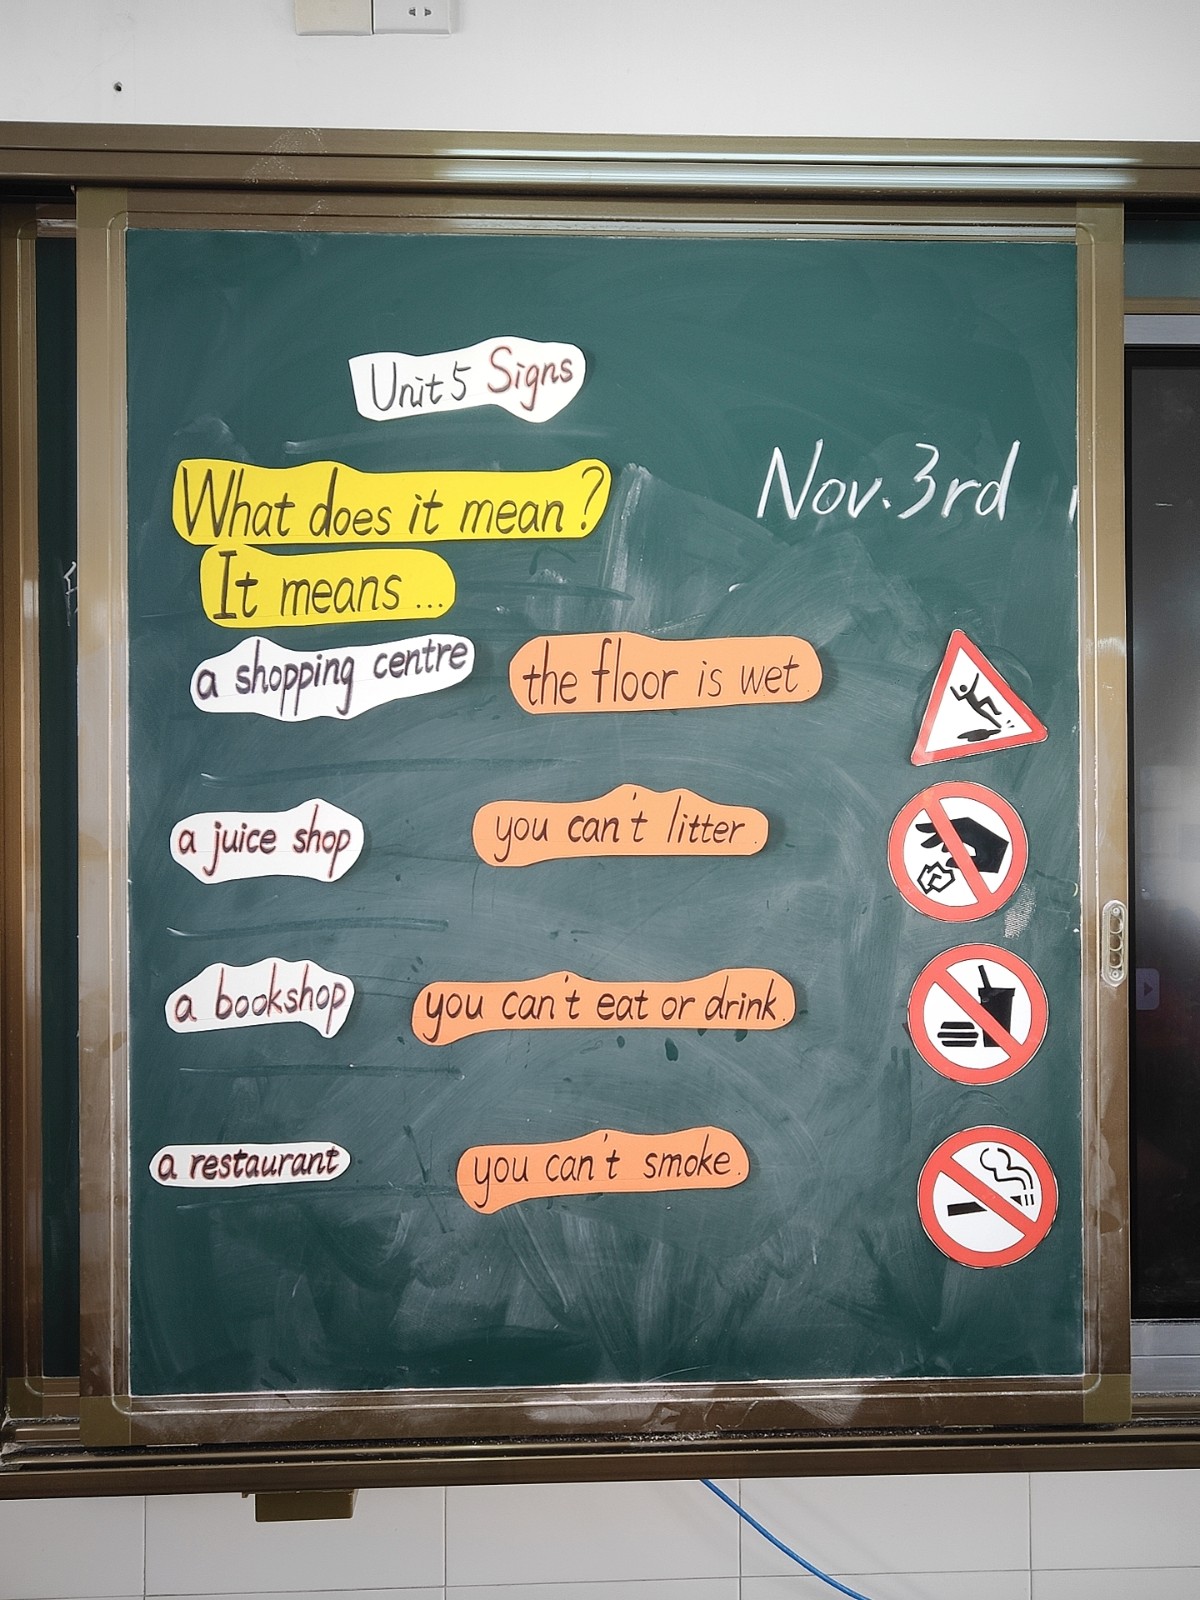 Unit 5 Signs
Nov. 3rd
What does it mean?
It means ...
a shopping centre the floor is wet.
a juice shop you can't litter.
a bookshop you can't eat or drink.
a restaurant you can't smoke.